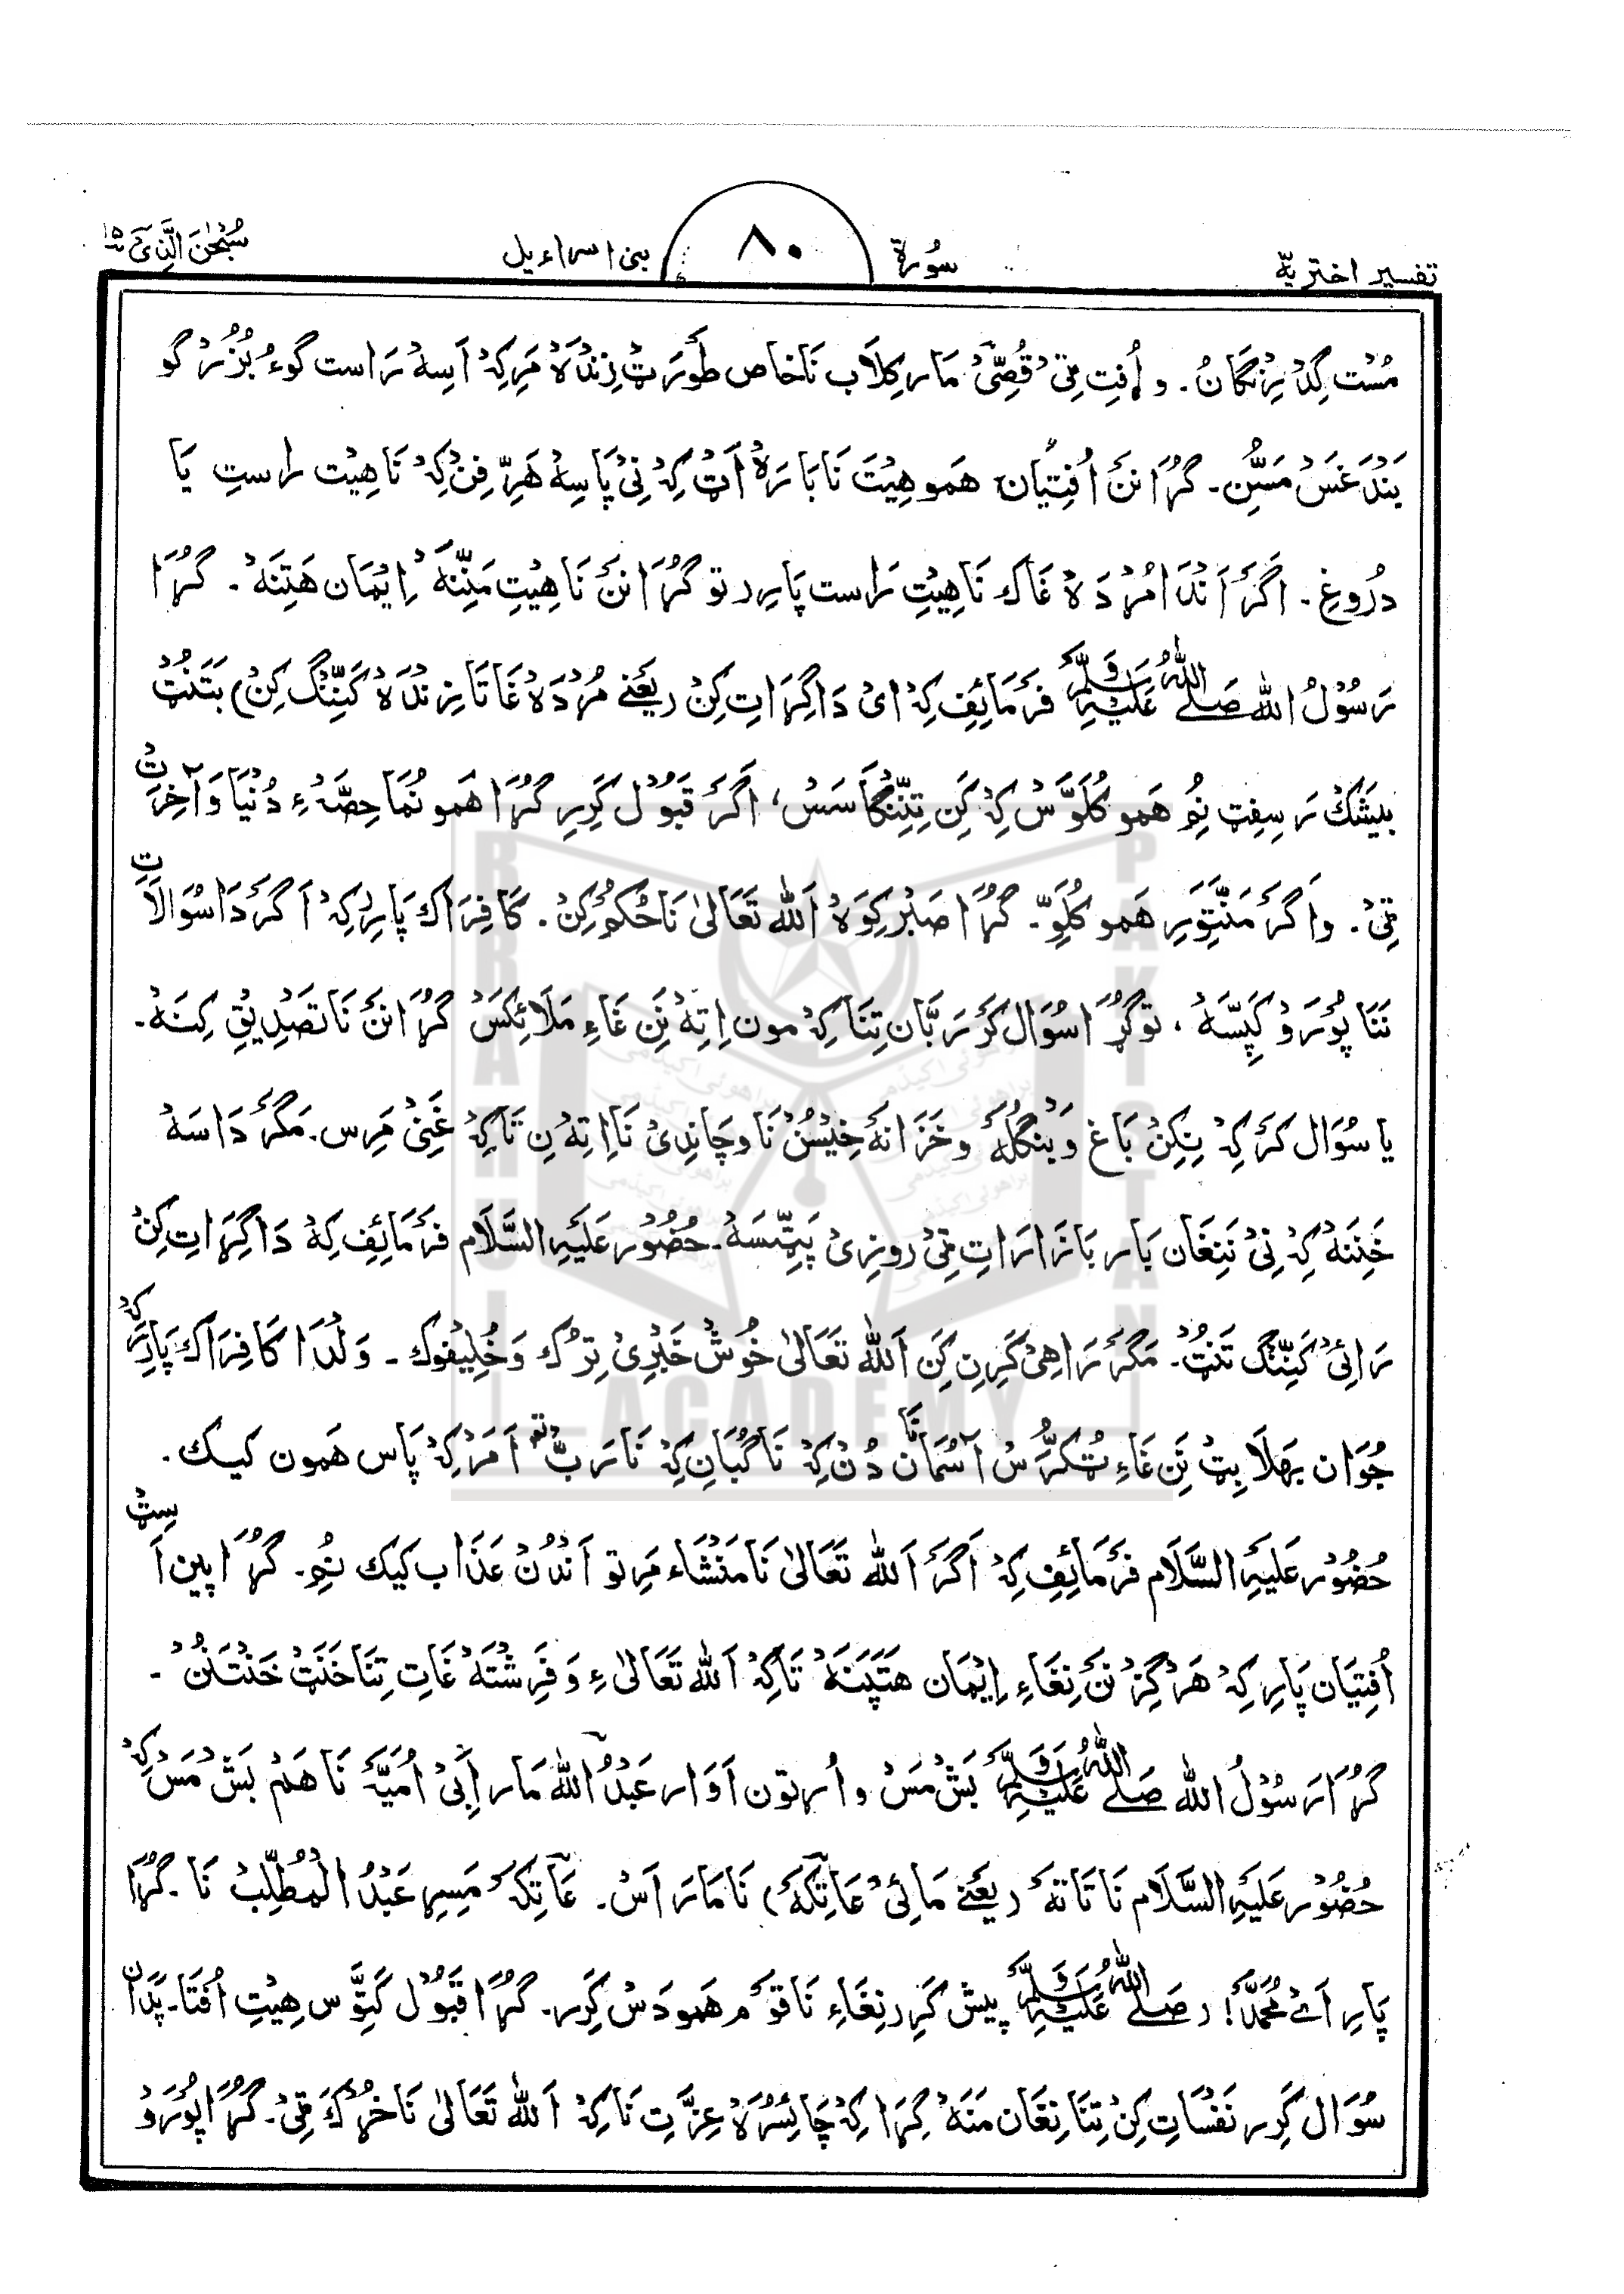 تفسیر اختریہ
سُورة
۸۰
بنی اسراءیل
سُبْحٰنَ الَّذِیْ ۱۵
مُسْت گِدْرِنْگانُ۔ و اُفِت ٹِیْ قُصَیّ مَار کِلَاب نَا خاص طَورَٹ زِنْدَہْ مَرِکِہْ اَسِہ رَاست گوءُ بُزُرْگو
بَنْدَغَسْ مَسُّن۔ گُرَا نَنْ اُفِتِیَان ھَمو ھِیْتَ نَا بَارَہْ اَٹ کِہْ نِیْ پَاسِہْ ھَرِّفِنْ کِہْ نَا ھِیْت راستِ یَا
دُروغِ۔ اگر اَنْدَا مُرْدَہْ غَاک نَا ھِیْتِ رَاست پَارِر تو گُرَا نَنْ نَا ھِیْتِ مَنِّنَہ اِیْمَان ھَتِنَہْ۔ گُرَا
رَسُوْلُ اللہ صَلَّی اللہُ عَلَیْہِ وَسَلَّمَ فَرْمَائِفِ کِہْ اِیْ دَا کِرَاتِ کِنْ (یَعْنِے مُرْدَہْ غَاتَا زِنْدَہْ کَنِّنْگ کِنْ) بَتَنُٹْ
بِیْشَکْ رَسِفِٹ نُم ھَمو کُلَوَّسْ کِہْ کَنِ تِنِّنْگا سَسْ، اَگَرْ قَبُوْل کَرِیرِ گُرَا ھَمو نُمَا حِصَّہ ءِ دُنْیَا وَ آخِرَتْ
ٹِیْ۔ و اَگَرْ مَنَّتِوَرِیر ھَمو کُلَوِ۔ گُرَا صَبْر کِوَہْ اَللہ تَعَالیٰ نَا حُکْم کِنْ۔ کَافِرَاک پَارِر کِہْ اَگَرْ دَا سُوَالَاتِ
نَنَا پُوْرَوْ کَپِیسَہْ، تو گُرَا سُوَال کَرْ رَبَّان تِنَا کِہْ مون اِتِہْ نَنِ غَاءِ مَلَائِکَسْ گُرَا نَنْ نَا تَصْدِیْقِ کِنَہْ۔
یا سُوَال کَرْ کِہْ نِکِنْ بَاغ وَ بَنْگُلَہْ و خَزَانَہ خِیْسُنْ نَا و چَانْدِیْ نَا اِتِہْ نِ تَاکِہْ غَنِیْ مَرِس۔ مَگَرْ دَاسَہْ
خَنِنَہْ کِہْ نِیْ نَنِغَان بَار بَازَارَاتِ ٹِیْ روزِیْ پَٹِّسَہْ۔ حُضُوْر عَلَیْہِ السَّلَام فَرْمَائِفِ کِہْ دَا کِرَاتِ کِنْ
رَائِیْ کَنِّنْگ تَنُٹْ۔ مَگَرْ رَاھِیْ کَرِنِ کَنِ اَللہ تَعَالیٰ خُوشْ خَبْرِیْ تِرُک وَ خُلِیْفوک۔ وَلْدَا کَافِرَاک پَارِر کِہْ
جُوَان بَھلَّا بِٹ نَنِ غَاءِ ٹُکُرَّسْ آسْمَان نَا دُنْ کِہْ نَا گُمَانِ کِہْ نَا رَبّ تو اَمَرْ کِہْ پَاس ھَمون کیک۔
حُضُوْر عَلَیْہِ السَّلَام فَرْمَائِفِ کِہْ اَگَرْ اَللہ تَعَالیٰ نَا مَنْشَاء مَرِ تو اَنْدُنْ عَذَاب کیک نُمِ۔ گُرَا پین اَسِٹْ
اُفِتِیَان پَارِ کِہْ ھَرْگِزْ نَنْ نِغَاءِ اِیْمَان ھَتَپَنَہْ تَاکِہْ اَللہ تَعَالیٰ ءِ وَ فَرِشْتَہْ غَاتِ تِنَا خَنَٹْ خَنْتَنُنْ۔
گُرَا رَسُوْلُ اللہ صَلَّی اللہُ عَلَیْہِ وَسَلَّمَ بَشْ مَسْ و اُرتون اَوَار عَبْدُ اللہ مَار اَبِیْ اُمَیَّہ نَا ھَمْ بَشْ مَسْ کِہْ
حُضُوْر عَلَیْہِ السَّلَام نَا تَاتَہ (یَعْنِے مَائِیْ عَاتِکَہْ) نَا مَار اَسْ۔ عَاتِکَہ مَسِیرِ عَبْدُ الْمُطَّلِبْ نَا۔ گُرَا
پَارِ اَےْ مُحَمَّدْ! (صَلَّی اللہُ عَلَیْہِ وَسَلَّمَ) پیش کَرِر نِغَاءِ نَا قَوْم ھَمودَسْ کَرِر۔ گُرَا قَبُوْل کَتِوَّس ھِیْتِ اُفْتَا۔ پَدَان
سُوَال کَرِر نَفْسَاتِ کِنْ تِنَا نِغَان مَنَہْ کِرَا کِہْ چَائِسُرَہْ عِزَّتِ نَا کِہْ اَللہ تَعَالیٰ نَا خُرُک ٹِیْ۔ گُرَا پُوْرَوْ